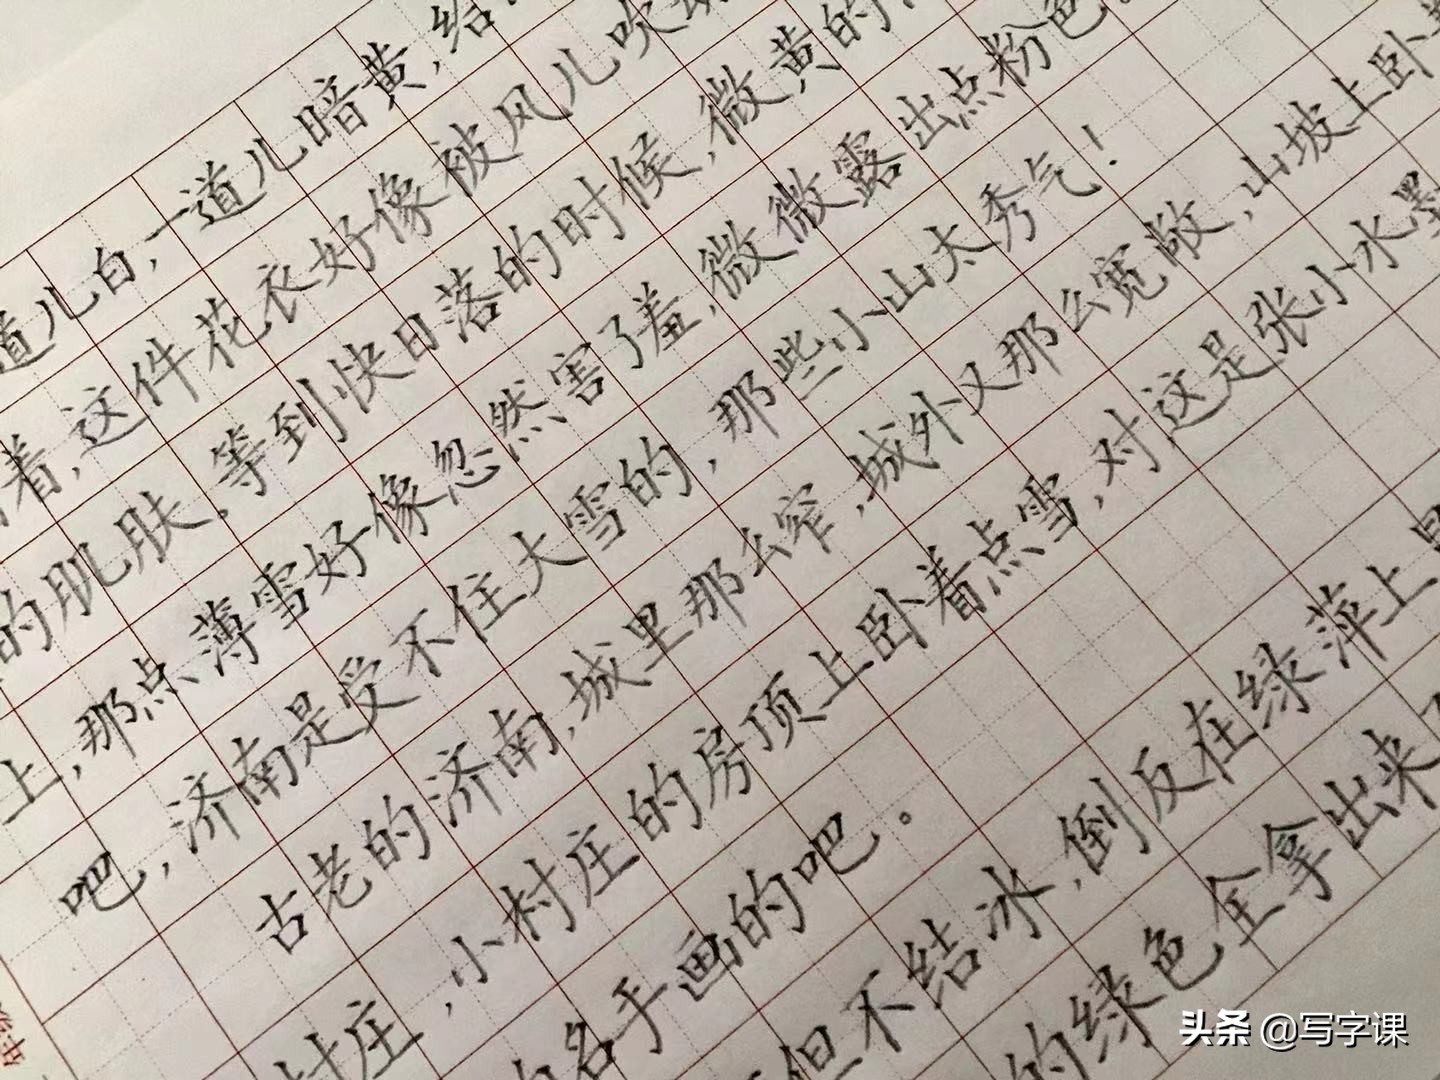 道儿白,一道儿暗黄,给
着,这件花衣好像被风儿吹
的肌肤。等到快日落的时候,微黄的
上,那点薄雪好像忽然害了羞,微微露出点粉色。
吧,济南是受不住大雪的,那些小山太秀气!
古老的济南,城里那么窄,城外又那么宽敞,山坡上卧
村庄,小村庄的房顶上卧着点雪,对这是张小水墨
名手画的吧。
但不结冰,倒反在绿萍上
的绿色全拿出来
头条 @写字课